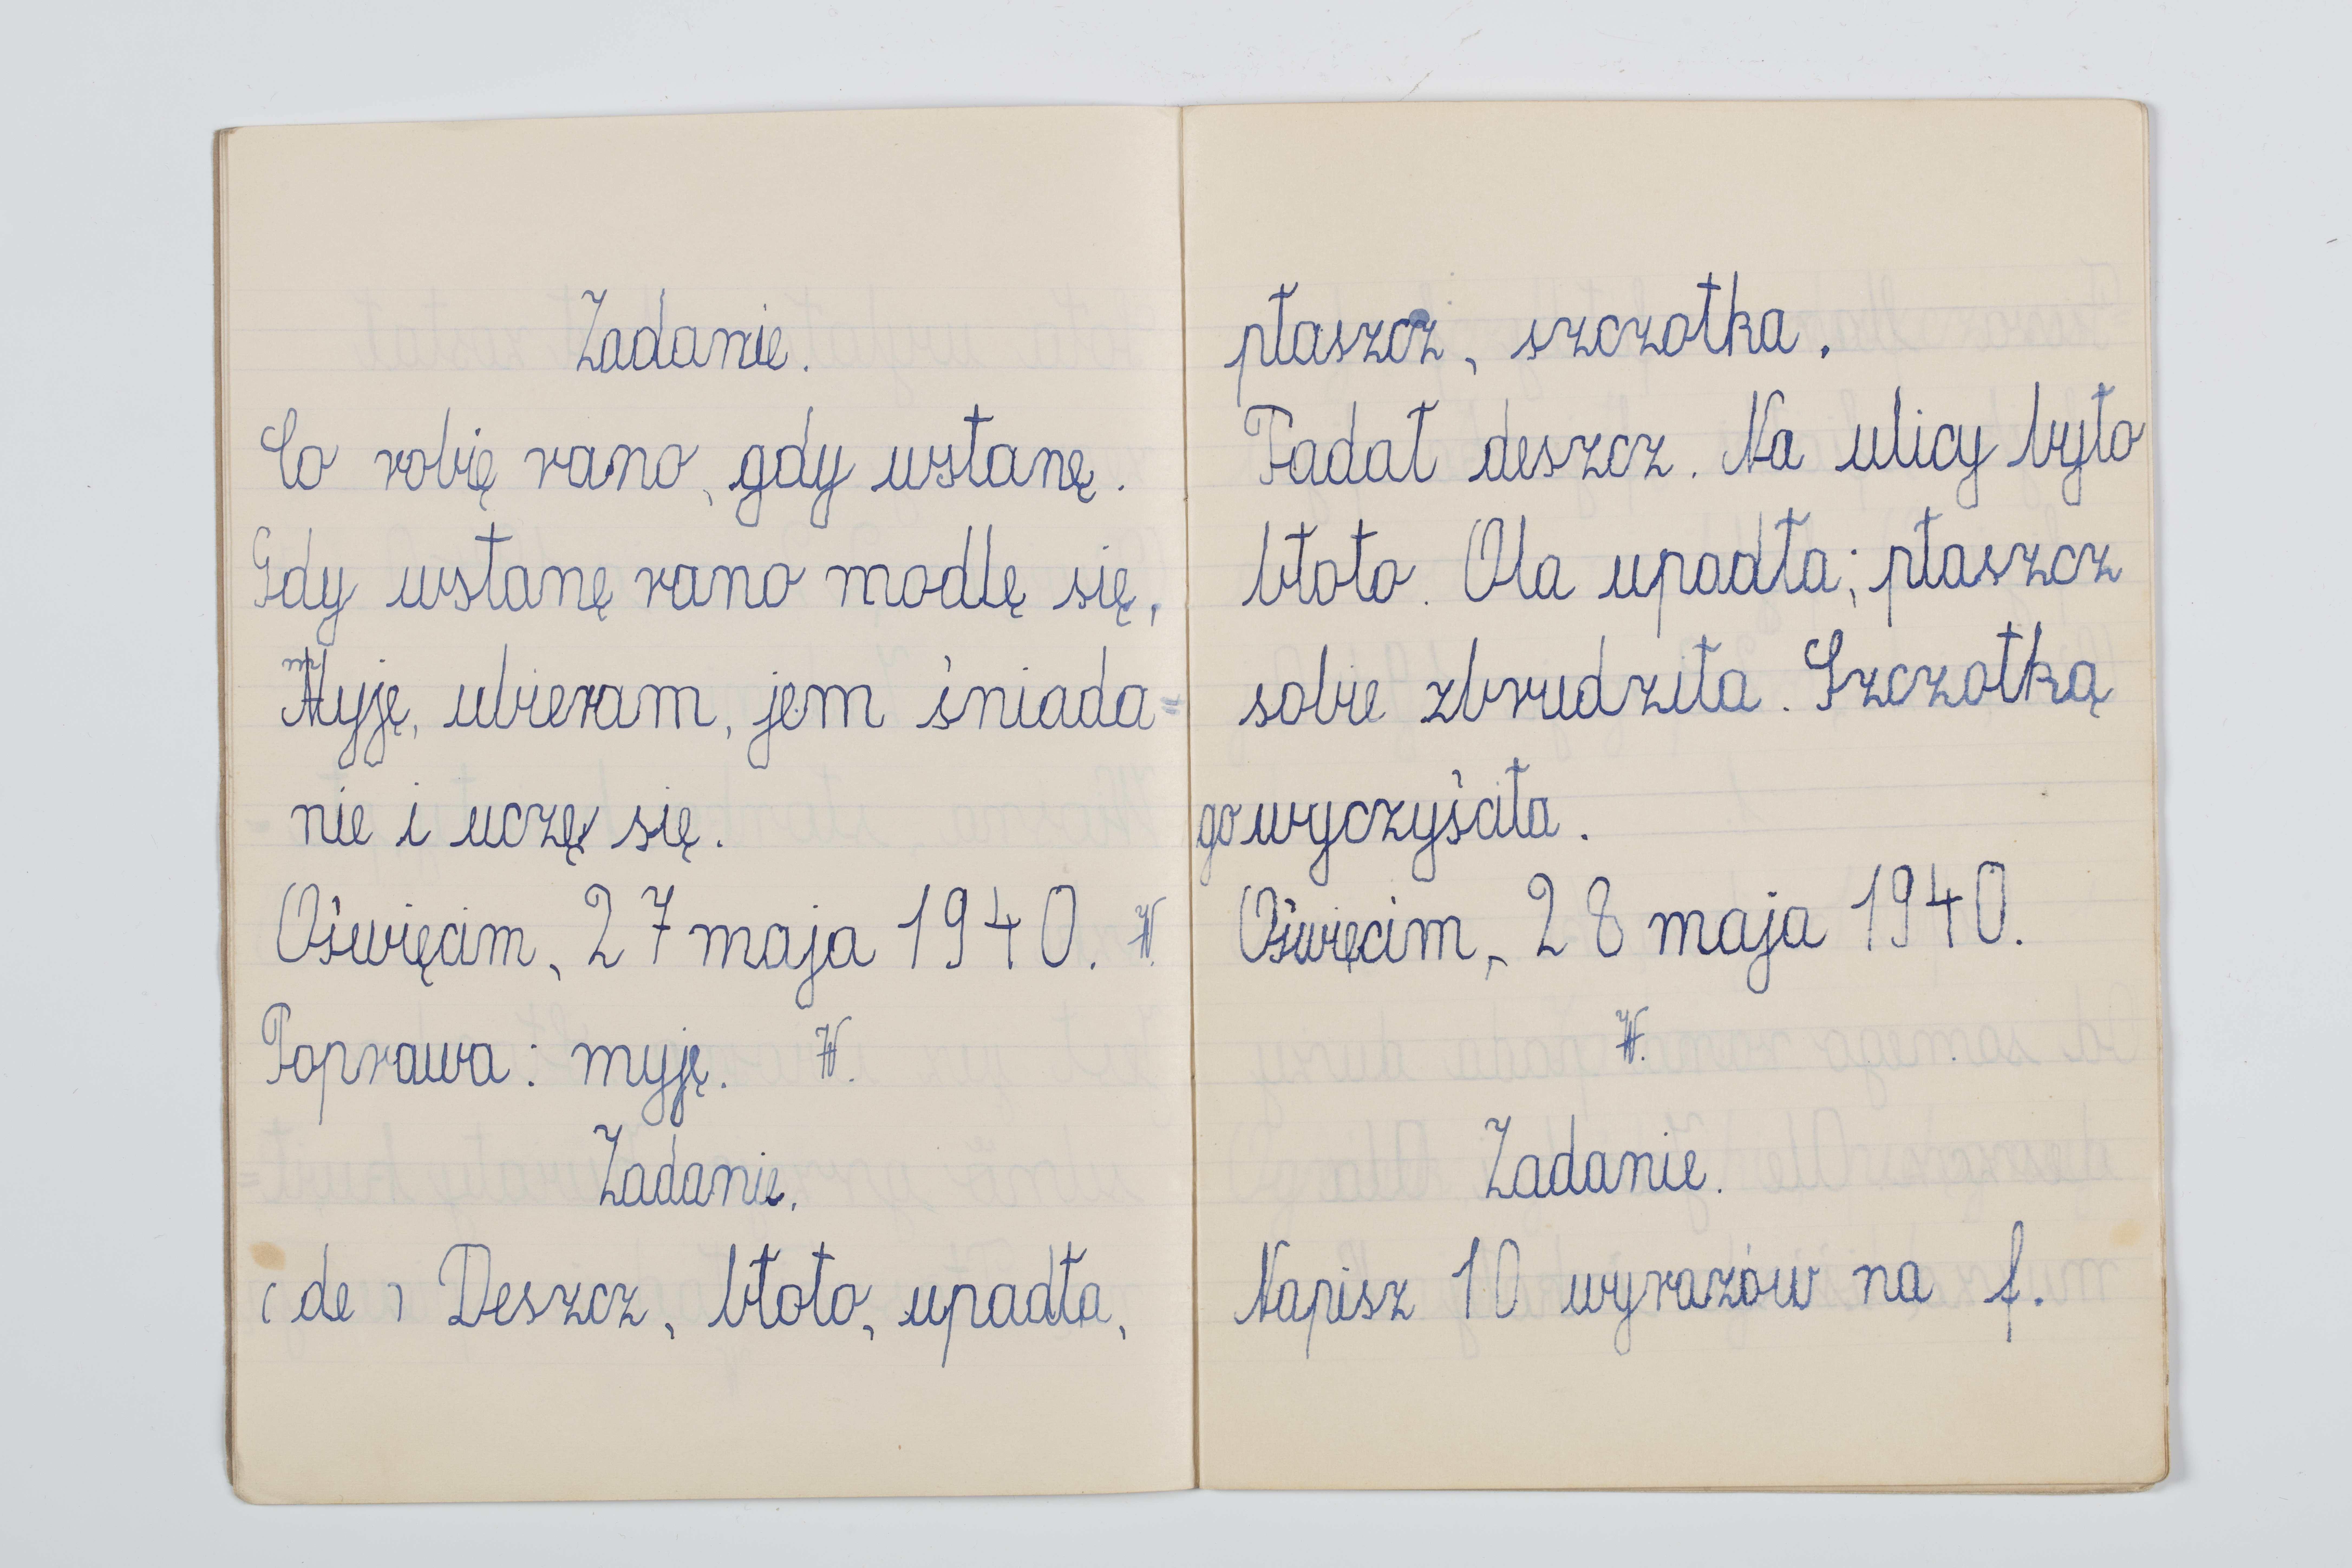 Zadanie.
Co robię rano, gdy wstanę.
Gdy wstanę rano modlę się,
Myję, ubieram, jem śniada=
nie i uczę się.
Oświęcim, 27 maja 1940. W.
Poprawa: myję. W.
Zadanie.
(de) Deszcz, błoto, upadła,
płaszcz, szczotka.
Padał deszcz. Na ulicy było
błoto. Ola upadła; płaszcz
sobie zbrudziła. Szczotką
go wyczyściła.
Oświęcim, 28 maja 1940.
W.
Zadanie.
Napisz 10 wyrazów na f.